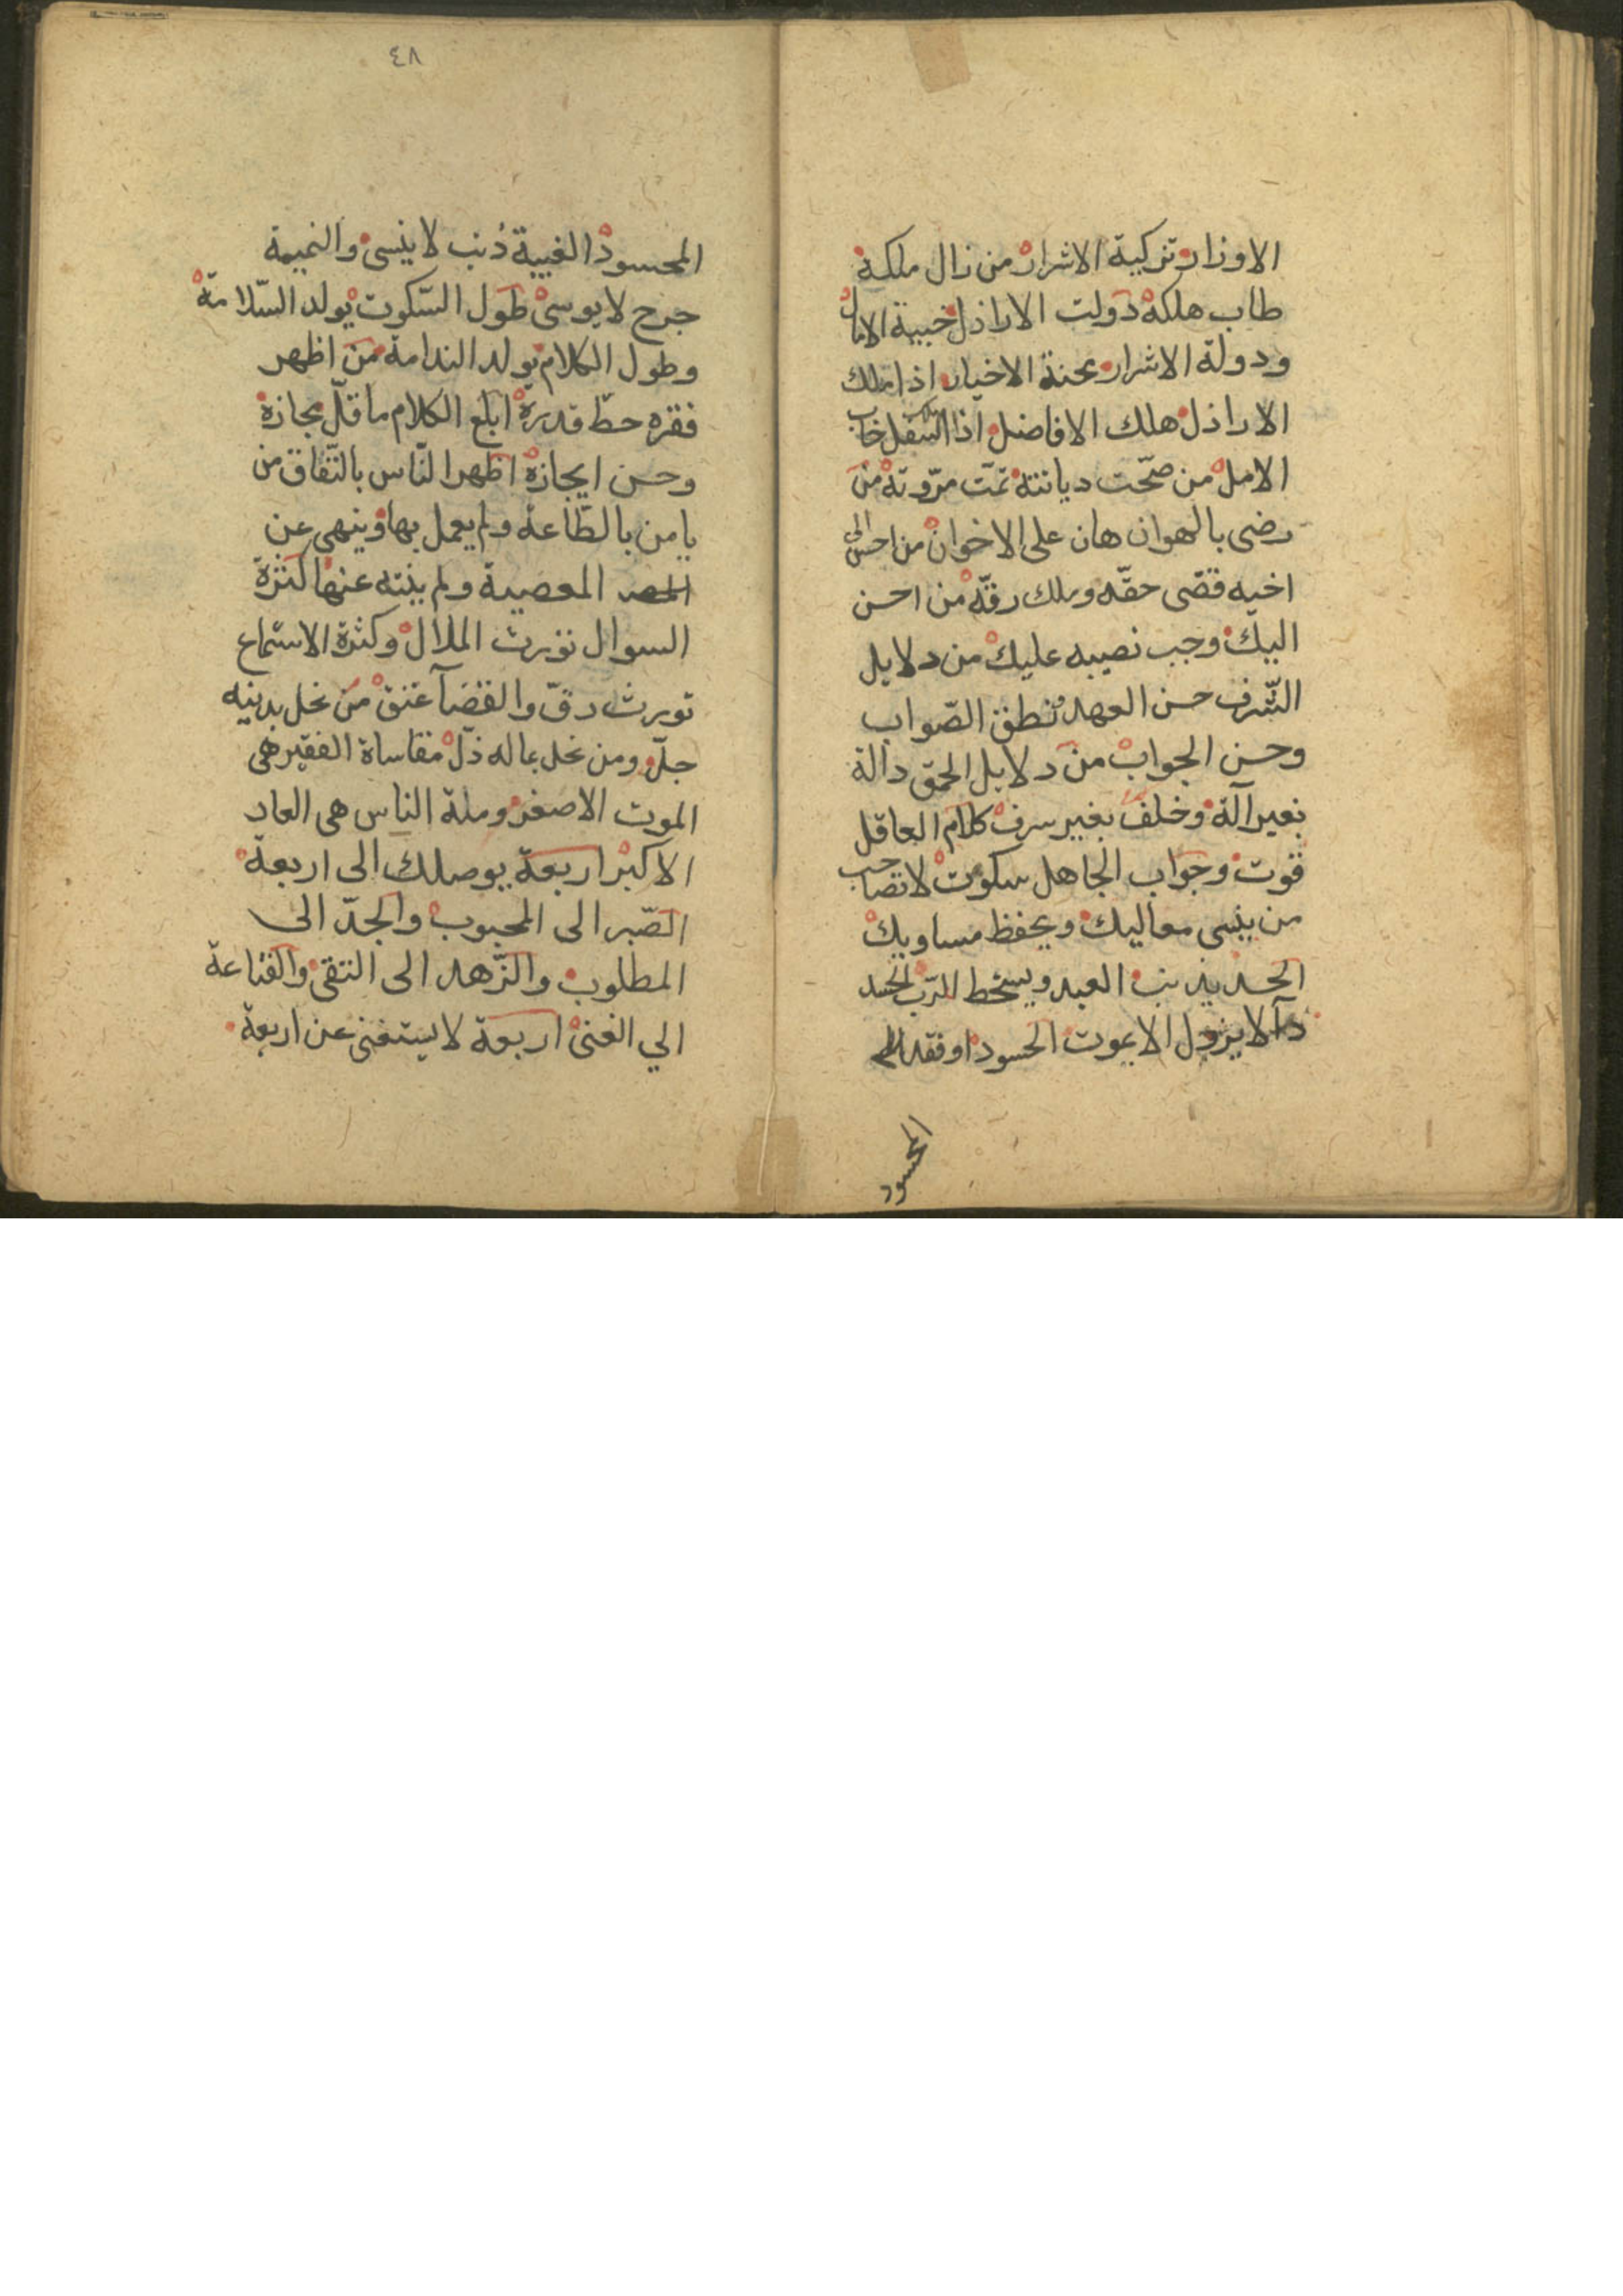 الاوزار تزكية الاشرار من زال ملكه
طاب هلكه دولت الاراذل خيبة الامال
ودولة الاشرار محنة الاخيار اذا ملك
الاراذل هلك الافاضل اذا ملك السفل خاب
الامل من صحّت ديانته تمّت مرّوته من
رضى بالهوان هان على الاخوان من احسن الى
اخيه فقضى حقّه وملك رقّه من احسن
اليك وجب نصيبه عليك من دلايل
الشّرف حسن العهد ونطق الصّواب
وحسن الجواب من دلايل الحمق دالة
بغير آلة وخلف بغير سرف كلام العاقل
قوت وجواب الجاهل سكوت لا تصاحب
من ينسى معاليك ويحفظ مساويك
الحسد يذيب العبد ويسخط الرّب الحسد
دآ لا يزول الا بموت الحسود او فقد
المحسود
٤٨
المحسود الغيبة ذنب لا ينسى والنميمة
جرح لا يوسى طول السّكوت يولد السّلامة
وطول الكلام يولد الندامة من اظهر
فقره حطّ قدره ابلغ الكلام ما قلّ مجازه
وحسن ايجازه اظهر النّاس بالنّفاق من
يامن بالطّاعة ولم يعمل بها وينهى عن
المعصية ولم ينته عنها كثرة
السوال تورث الملال وكثرة الاستماع
تورث دقّ والقضآ عتق من بخل بدينه
جلّ ومن بخل بماله ذلّ مقاساة الفقير هى
الموت الاصغر وملة الناس هى العار
الاكبر اربعة يوصلك الى اربعة
الصّبر الى المحبوب والجدّ الى
المطلوب والزّهد الى التقى والقناعة
الي الغنى اربعة لا يستغنى عن اربعة